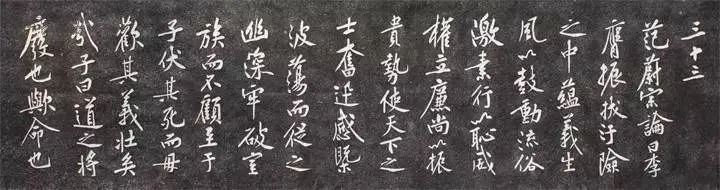 三十三
范蔚宗論曰李
膺振拔汙險
之中蘊義生
風以鼓動流俗
激素行以恥威
權立廉尚以振
貴勢使天下之
士奮迅感槩
波蕩而從之
幽深牢破室
族而不顧至于
子伏其死而母
歡其義壯矣
哉子曰道之將
廢也歟命也